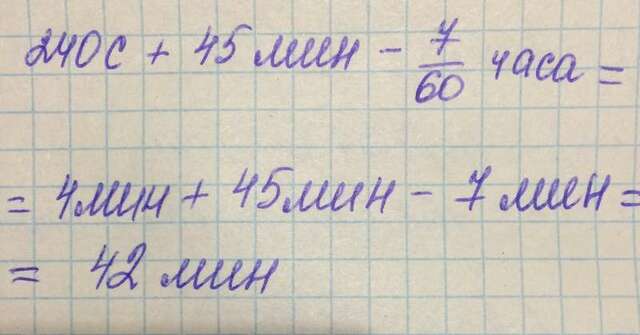 240с + 45 мин - 7/60 часа =
= 4мин + 45мин - 7 мин =
= 42 мин